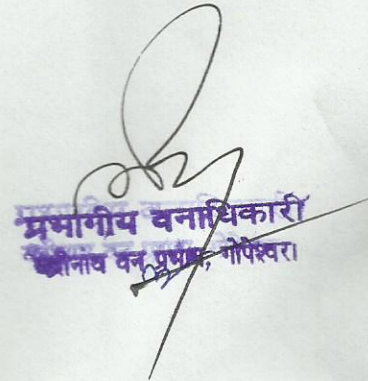 प्रभागीय वनाधिकारी
वन प्रभाग, गोपेश्वर।